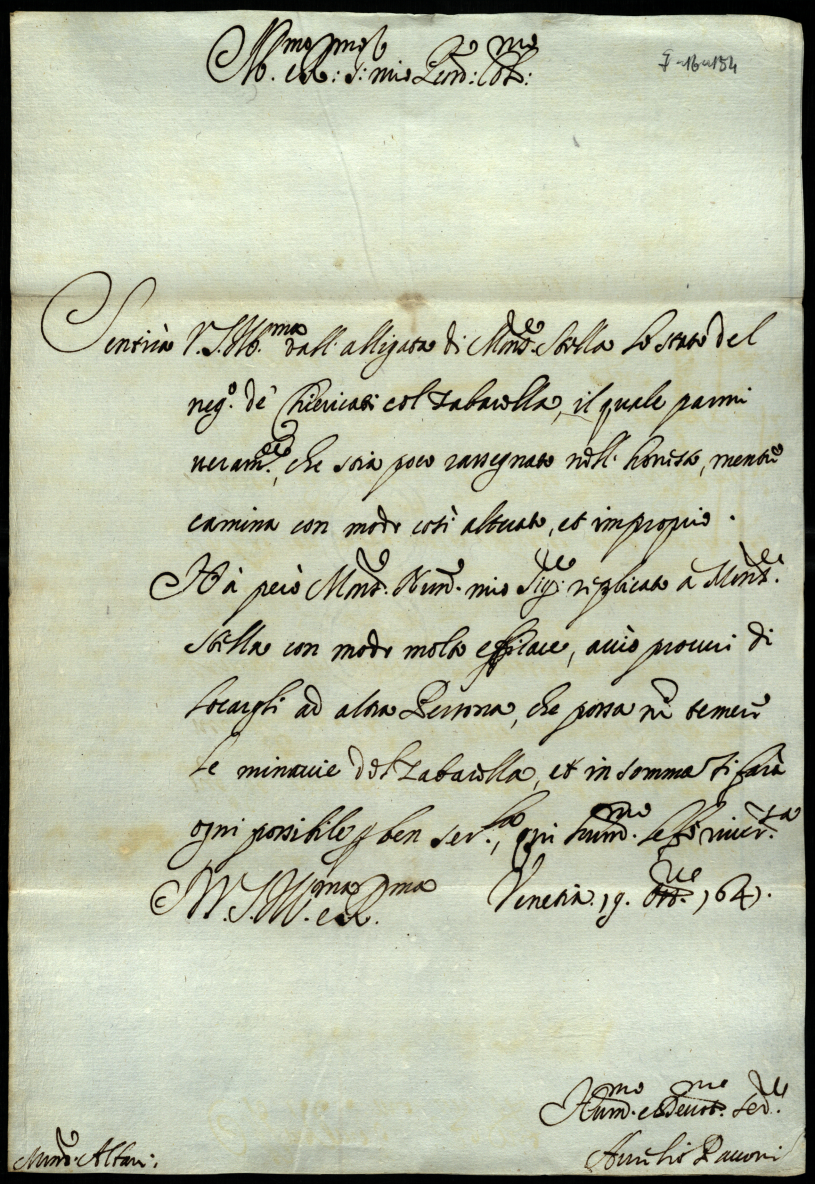 Ill.mo e R.mo S.r mio P.ron Col.mo
I-16-154
Sentirà V.S.Ill.ma dall'alligata di Mons.re Stella lo stato del
neg.o de' Chiericati col Zabarella, il quale parmi
veram.te, che stia poco rassegnato nell'honesto, mentre
camina con modo così alterato, et improprio.
Hà però Mons.r Nun.o mio Sig.re replicato à Mons.re
Stella con modo molto efficace, acciò procuri di
locargli ad altra Persona, che possa non temere
le minaccie del Zabarella, et in somma si farà
ogni possibile p ben ser.la, qui hum.mo le fo river.za
D V.S.Ill.ma e R.ma Venetia 19. 164
Hum.mo e Devot.mo Ser.re
Aurelio
Mons.r Altari: